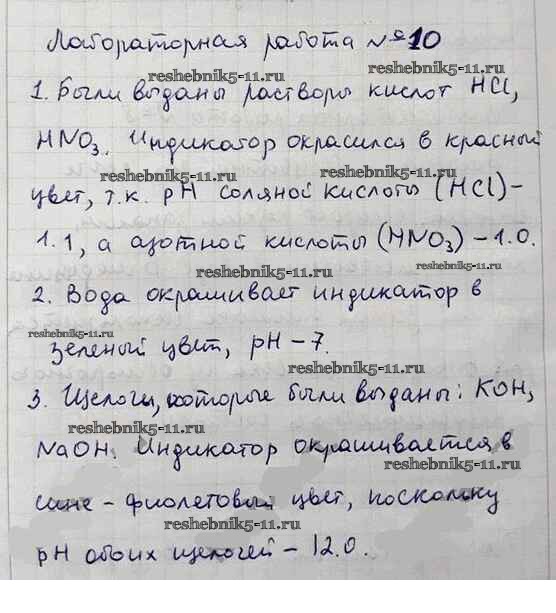 Лабораторная работа №10
reshebnik5-11.ru reshebnik5-11.ru
1. Были выданы растворы кислот HCl,
HNO3. Индикатор окрасился в красный
reshebnik5-11.ru
цвет, т.к. pH соляной кислоты (HCl)-
reshebnik5-11.ru
1.1, а азотной кислоты (HNO3) - 1.0.
reshebnik5-11.ru reshebnik5-11.ru
2. Вода окрашивает индикатор в
reshebnik5-11.ru
зеленый цвет, pH - 7.
reshebnik5-11.ru
3. Щелочи, которые были выданы: KOH,
reshebnik5-11.ru
NaOH. Индикатор окрашивается в
reshebnik5-11.ru
сине - фиолетовый цвет, поскольку
reshebnik5-11.ru
pH обоих щелочей - 12.0.